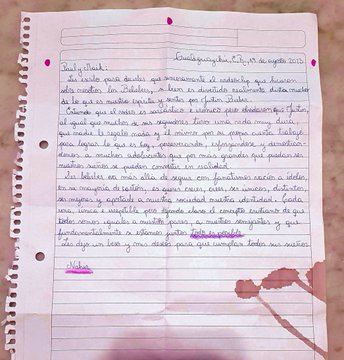 Gualeguaychú, E.R., 19 de agosto 2013
Paul y Maik:
Les escribo para decirles que sinceramente el videoclip que hicieron
sobre nosotros los Beliebers, si bien es divertido realmente dista mucho
de lo que es nuestro espíritu y sentir por Justin Bieber.
Entiendo que el video es sarcástico e irónico pero olvidaron que Justin,
al igual que muchos de sus seguidores tiene una vida muy dura,
que nadie le regaló nada y él mismo por su propia cuenta trabajó
para lograr lo que es hoy, perseverando, esforzándose y demostrán-
donos a muchos adolescentes que por más grandes que puedan ser
nuestros sueños se pueden convertir en realidad.
Ser belieber va más allá de seguir con fanatismo ciego a ídolos,
en su mayoría de cartón, es querer creer, crecer, ser únicos, distintos,
ser mejores y aportarle a nuestra sociedad nuestra identidad. Cada
uno, único e irrepetible pero dejando claro el concepto cristiano de que
todos somos iguales a nuestros pares, a nuestros semejantes y que
fundamentalmente si estamos juntos todo es posible.
Les dejo un beso y mis deseos para que cumplan todos sus sueños
Nahir